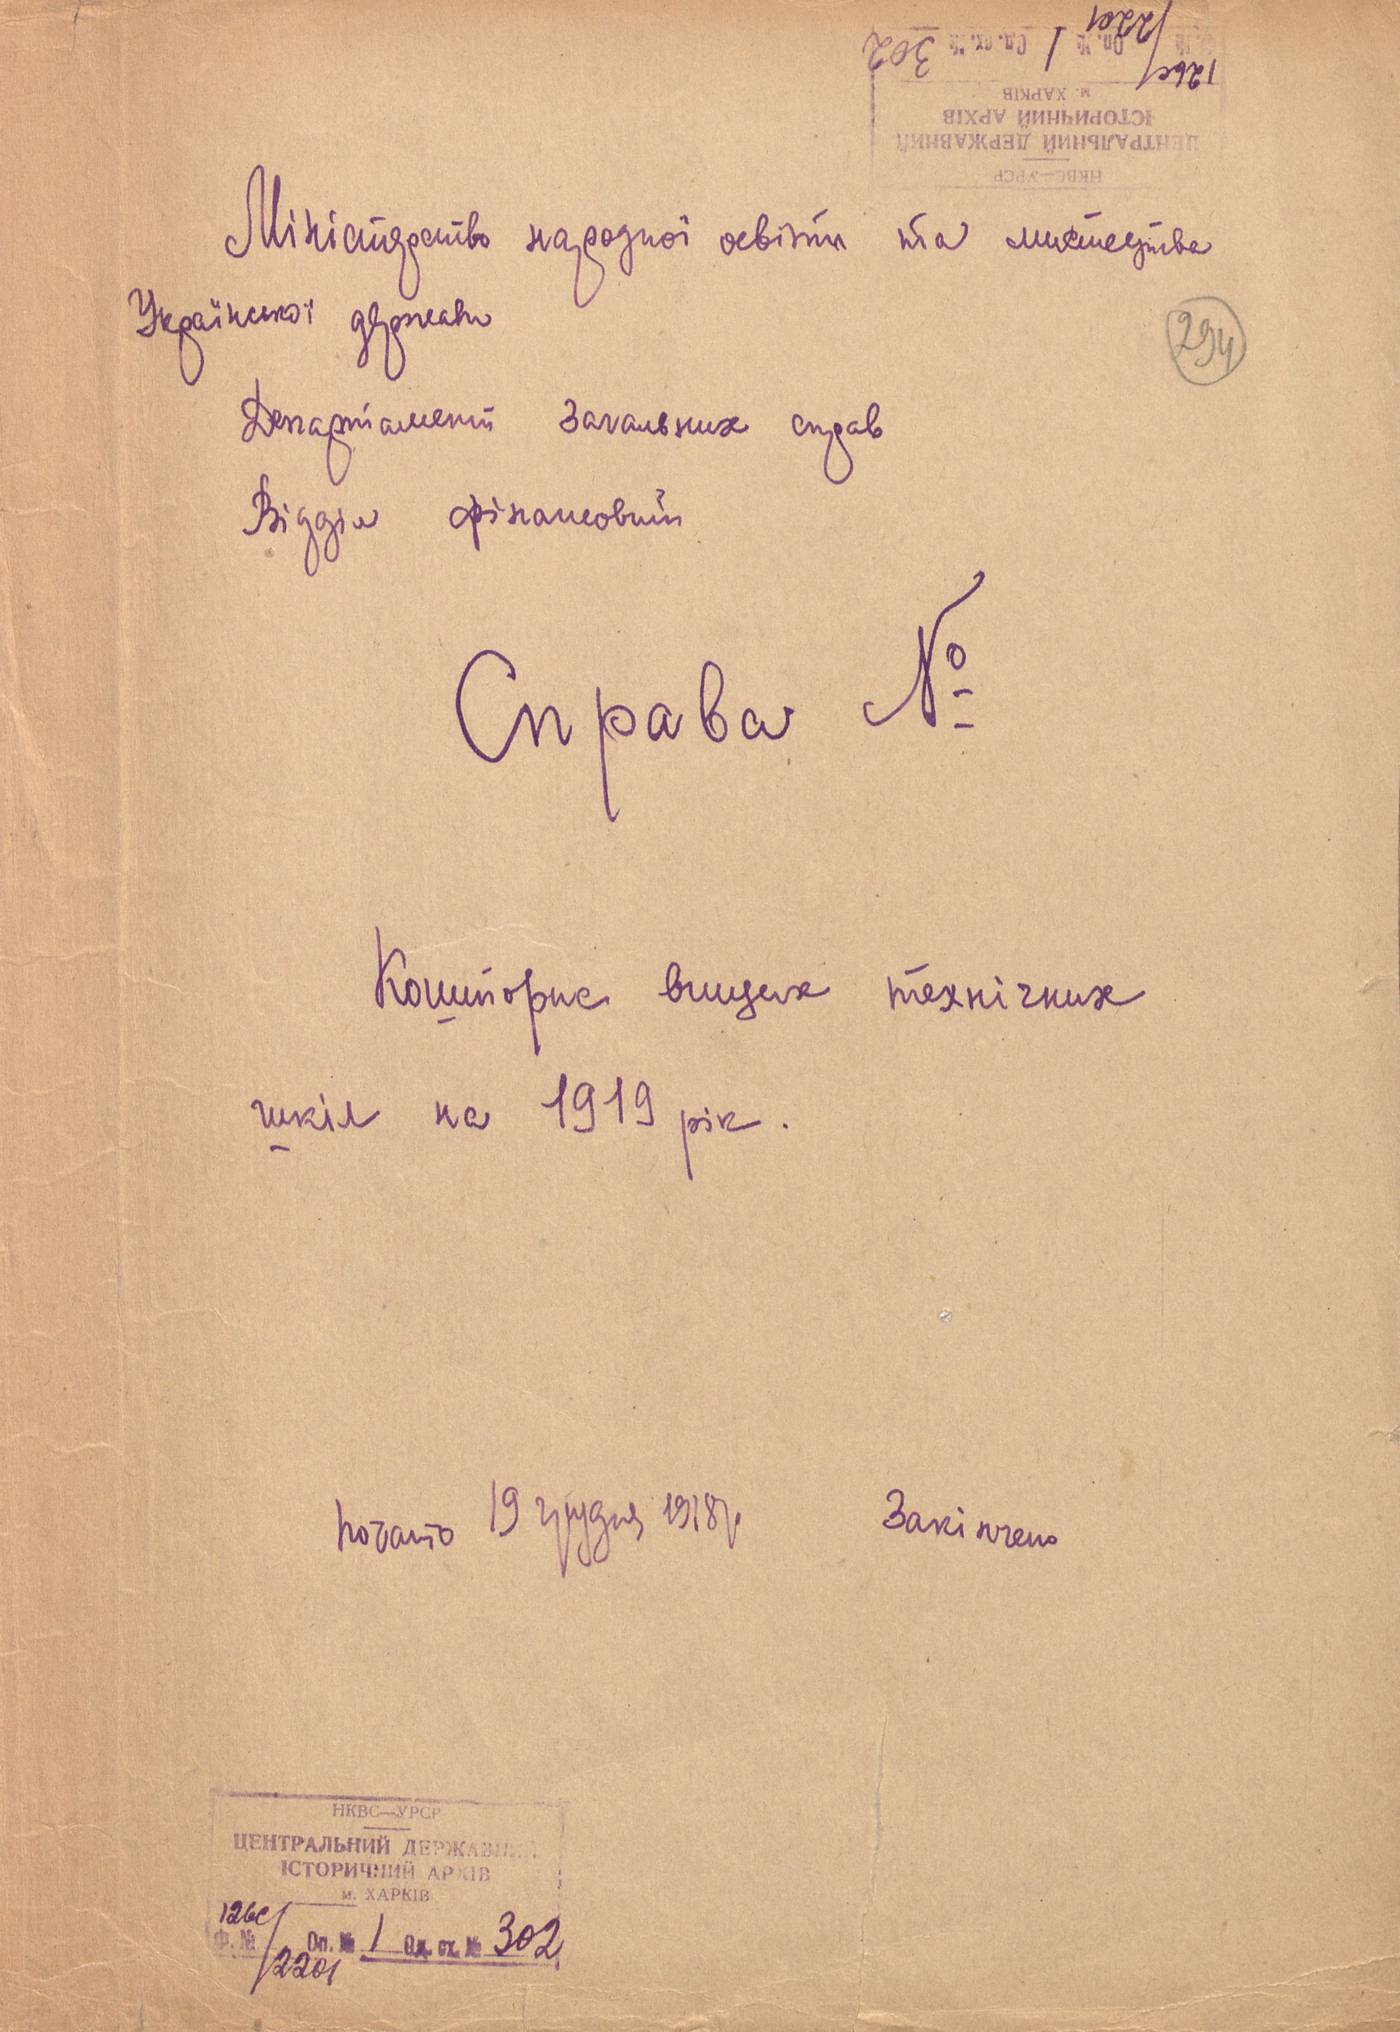 НКВС—УРСР
ЦЕНТРАЛЬНИЙ ДЕРЖАВНИЙ
ІСТОРИЧНИЙ АРХІВ
м. ХАРКІВ
126с/2201 Оп. № 1 Од. сх. № 302
Міністерство народної освіти та мистецтва
Української держави
294
Департамент Загальних справ
Відділ фінансовий
Справа №
Кошторис вищих технічних
шкіл на 1919 рік.
Почато 19 грудня 1918 р. Закінчено
НКВС—УРСР
ЦЕНТРАЛЬНИЙ ДЕРЖАВНИЙ
ІСТОРИЧНИЙ АРХІВ
м. ХАРКІВ
Ф. № 126с/2201 Оп. № 1 Од. сх. № 302